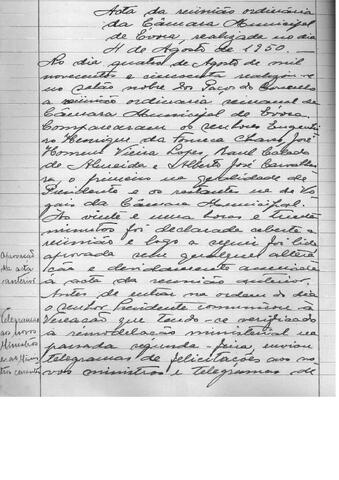 Acta da reunião ordinária
da Câmara Municipal
de Evora, realizada no dia
4 de Agosto de 1950.
No dia quatro de Agosto de mil
novecentos e cincoenta realizou-se
no salão nobre dos Paços do Concelho
a reunião ordinaria semanal da
Câmara Municipal de Evora.
Compareceram os senhores Engenhei
ro Henrique da Fonseca Chaves, José
Homem Vieira Lopes, Raul Calado
de Almeida e Alberto José Carvalhei
ra, o primeiro na qualidade de
Presidente e os restante na de Vo
gais da Câmara Municipal.
Ás vinte e uma horas e trinta
minutos foi declarada aberta a
reunião e logo a seguir foi lida
aprovada sem qualquer altera
ção e devidamente assinada
a acta da reunião anterior.
Antes de entrar na ordem do dia
o senhor Presidente comunicou á
Vereação que tendo-se verificado
a remodelação ministerial na
passada segunda-feira, enviou
telegramas de felicitações aos no
vos ministros e telegramas de
Aprovação
da acta
anterior
Telegramas
aos novos
Ministros
e aos Minis
tros